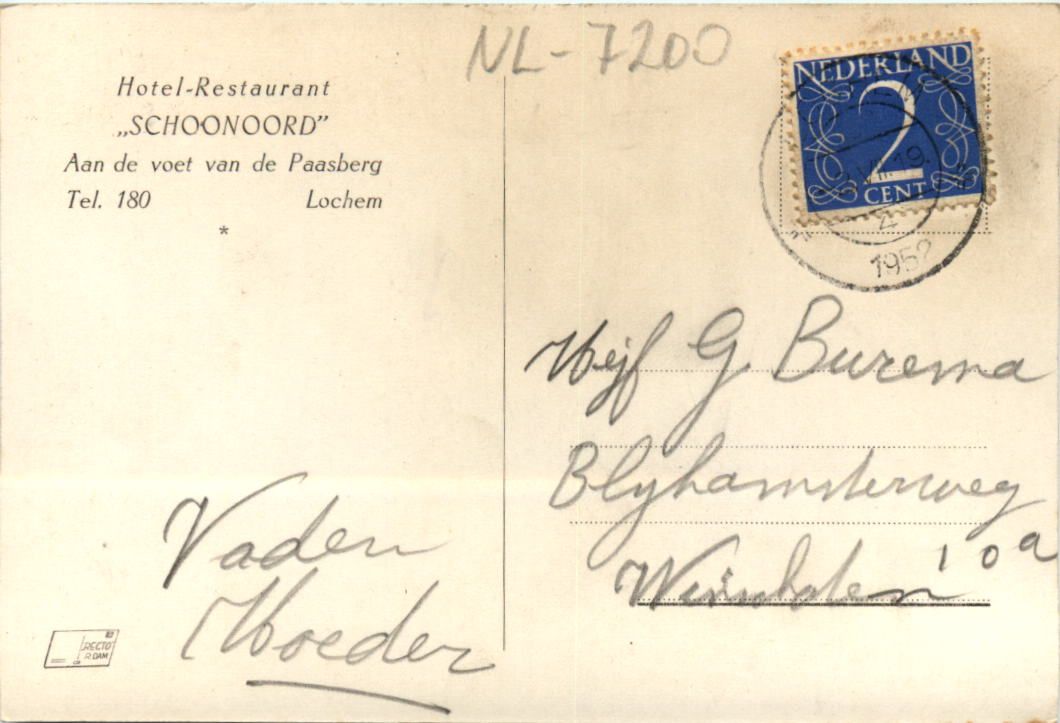 NL-7200
Hotel-Restaurant
„SCHOONOORD”
Aan de voet van de Paasberg
Tel. 180 Lochem
*
NEDERLAND
2
CENT
VII.19.
4
1952
Mejf G Burema
Blyhamsterweg
10a
Winschoten
Vader
Moeder
RECTO
R.DAM